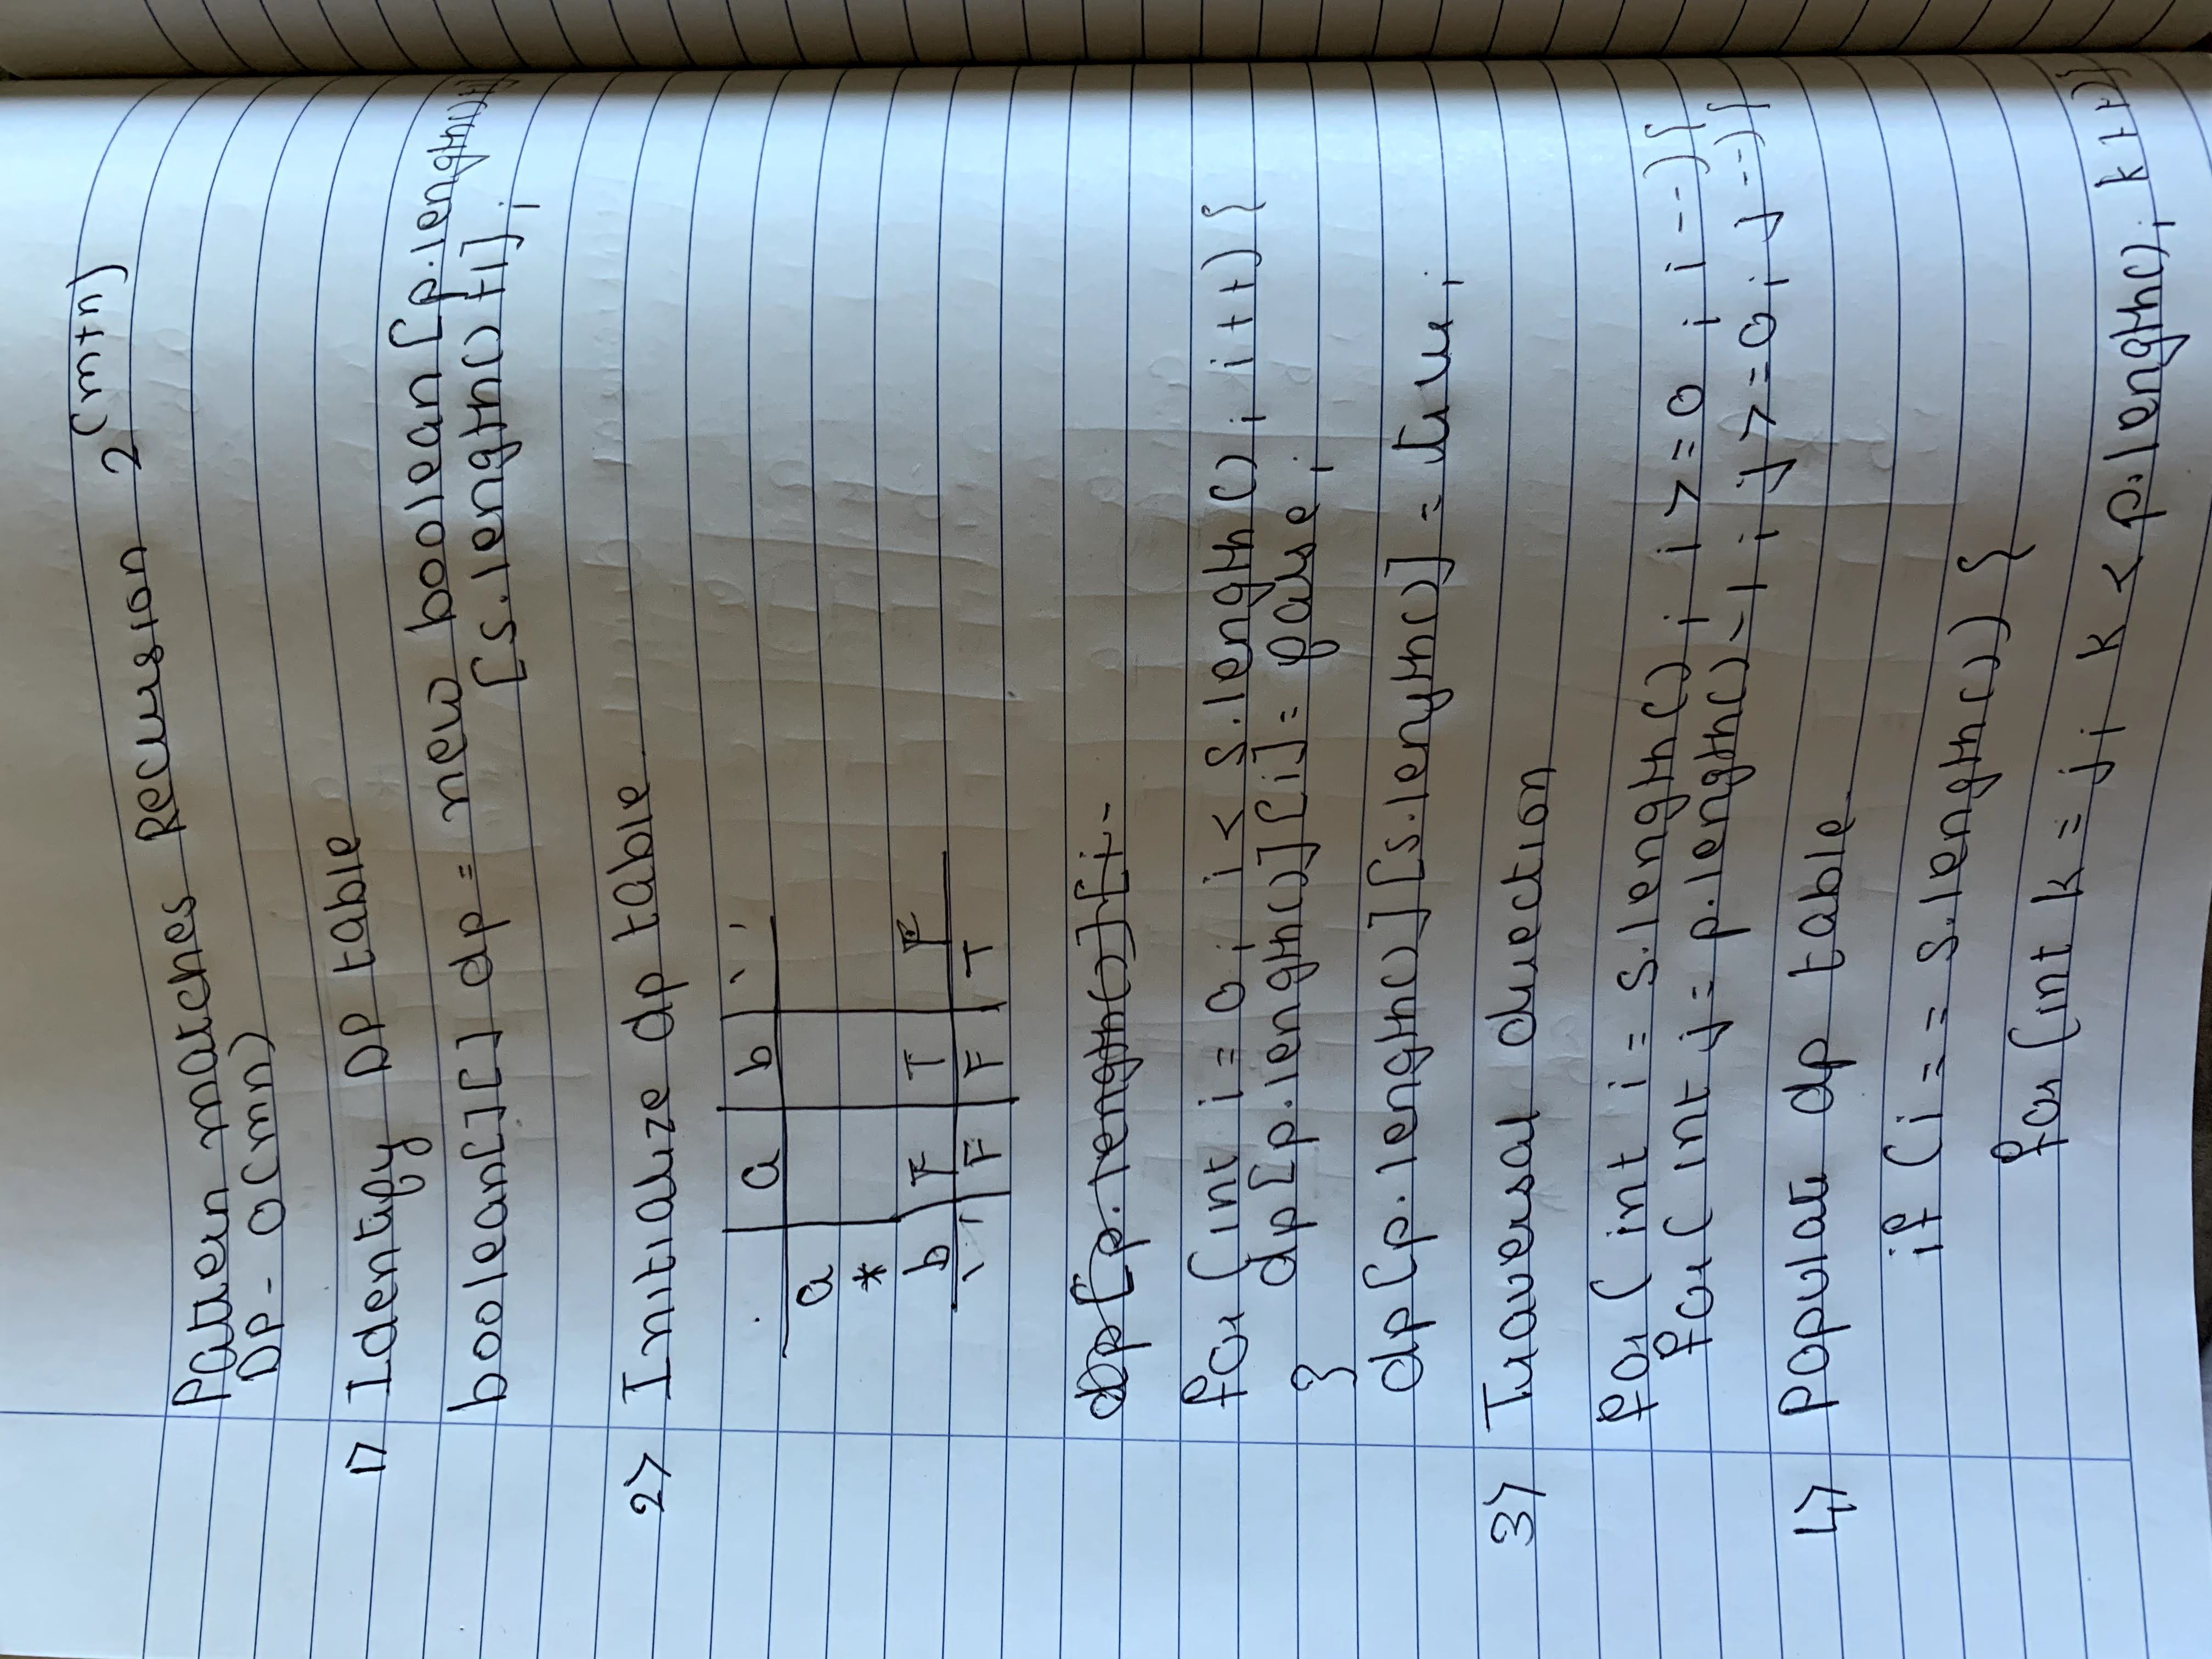 Pattern matches Recursion 2^(m+n)
DP - O(mn)
1> Identify DP table
boolean[][] dp = new boolean [p.length()+1]
[s.length()+1];
2> Initialize dp table
a b ` '
a
*
b F T F
` ' F F T
dp[p.length()][i-
for (int i = 0; i < s.length(); i++) {
dp[p.length()][i] = false;
}
dp[p.length()][s.length()] = true;
3> Traversal direction
for (int i = s.length(); i >= 0; i--) {
for (int j = p.length()-1; j >= 0; j--) {
4> Populate dp table
if (i == s.length()) {
for (int k = j; k < p.length(); k++) {